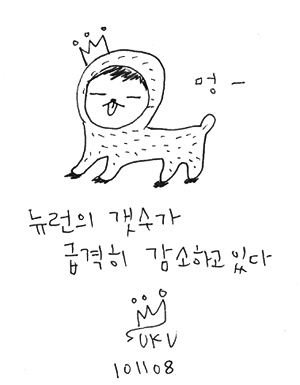 멍 —
뉴런의 갯수가
급격히 감소하고있다
SUKU
101108